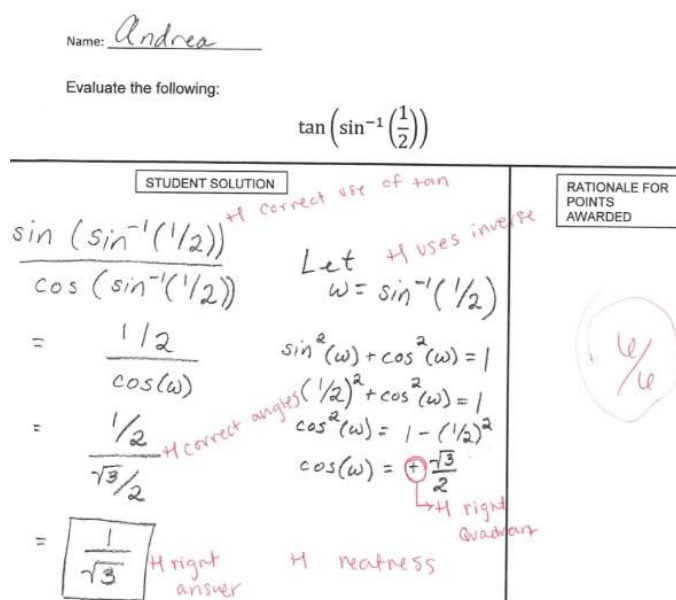 Name: Andrea
Evaluate the following:
tan(sin⁻¹(1/2))
STUDENT SOLUTION
+1 correct use of tan
RATIONALE FOR
POINTS
AWARDED
sin (sin⁻¹(1/2))
cos (sin⁻¹(1/2))
= 1/2
cos(ω)
= 1/2
√3/2
+1 correct angles
= 1
√3
+1 right
answer
Let
+1 uses inverse
ω = sin⁻¹(1/2)
sin²(ω) + cos²(ω) = 1
(1/2)² + cos²(ω) = 1
cos²(ω) = 1 - (1/2)²
cos(ω) = + √3
2
+1 right
Quadrant
+1 neatness
6/6